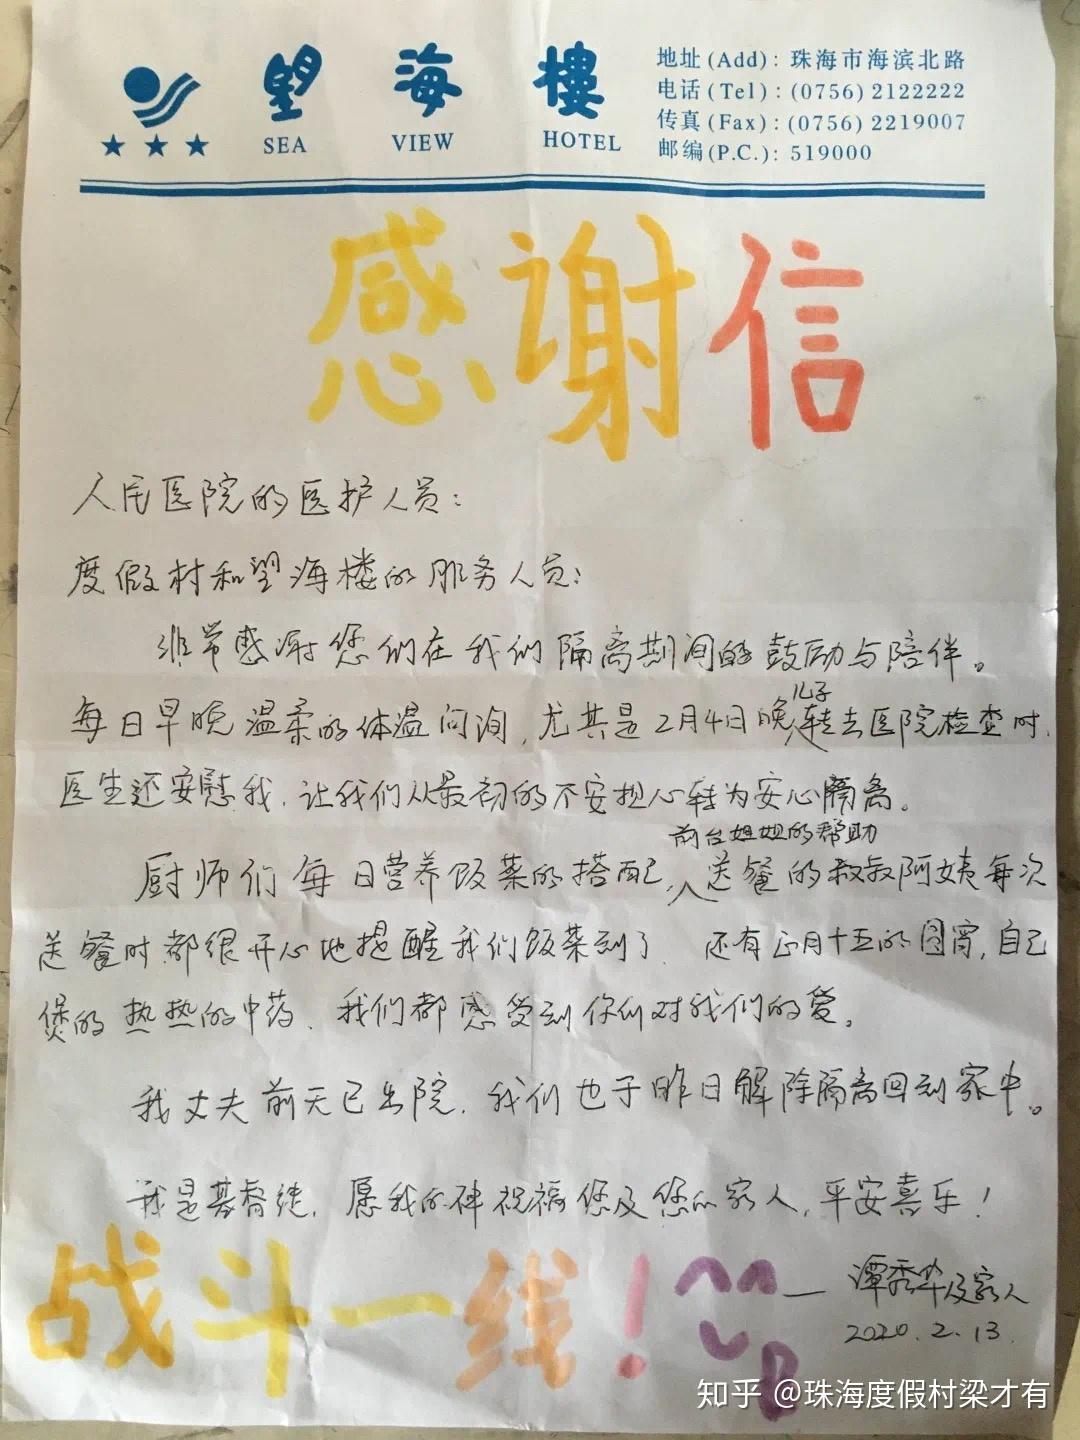 望海樓
SEA VIEW HOTEL
地址(Add): 珠海市海滨北路
电话(Tel): (0756) 2122222
传真(Fax): (0756) 2219007
邮编(P.C.): 519000
感谢信
人民医院的医护人员:
度假村和望海楼的服务人员:
非常感谢您们在我们隔离期间的鼓励与陪伴。
每日早晚温柔的体温问询,尤其是2月4日晚儿子转去医院检查时,
医生还安慰我,让我们从最初的不安担心转为安心隔离。
前台姐姐的帮助
厨师们每日营养饭菜的搭配,送餐的叔叔阿姨每次
送餐时都很开心地提醒我们饭菜到了,还有正月十五的圆宵,自己
煲的热热的中药,我们都感受到你们对我们的爱。
我丈夫前天已出院,我们也于昨日解除隔离回到家中。
我是基督徒,愿我的神祝福您及您的家人,平安喜乐!
战斗一线!
— 谭秀华及家人
2020.2.13.
知乎 @珠海度假村梁才有